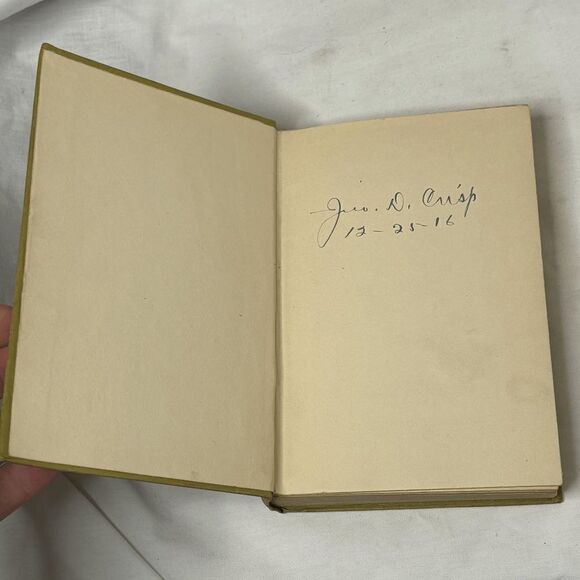 Jno. D. Crisp
12-25-16